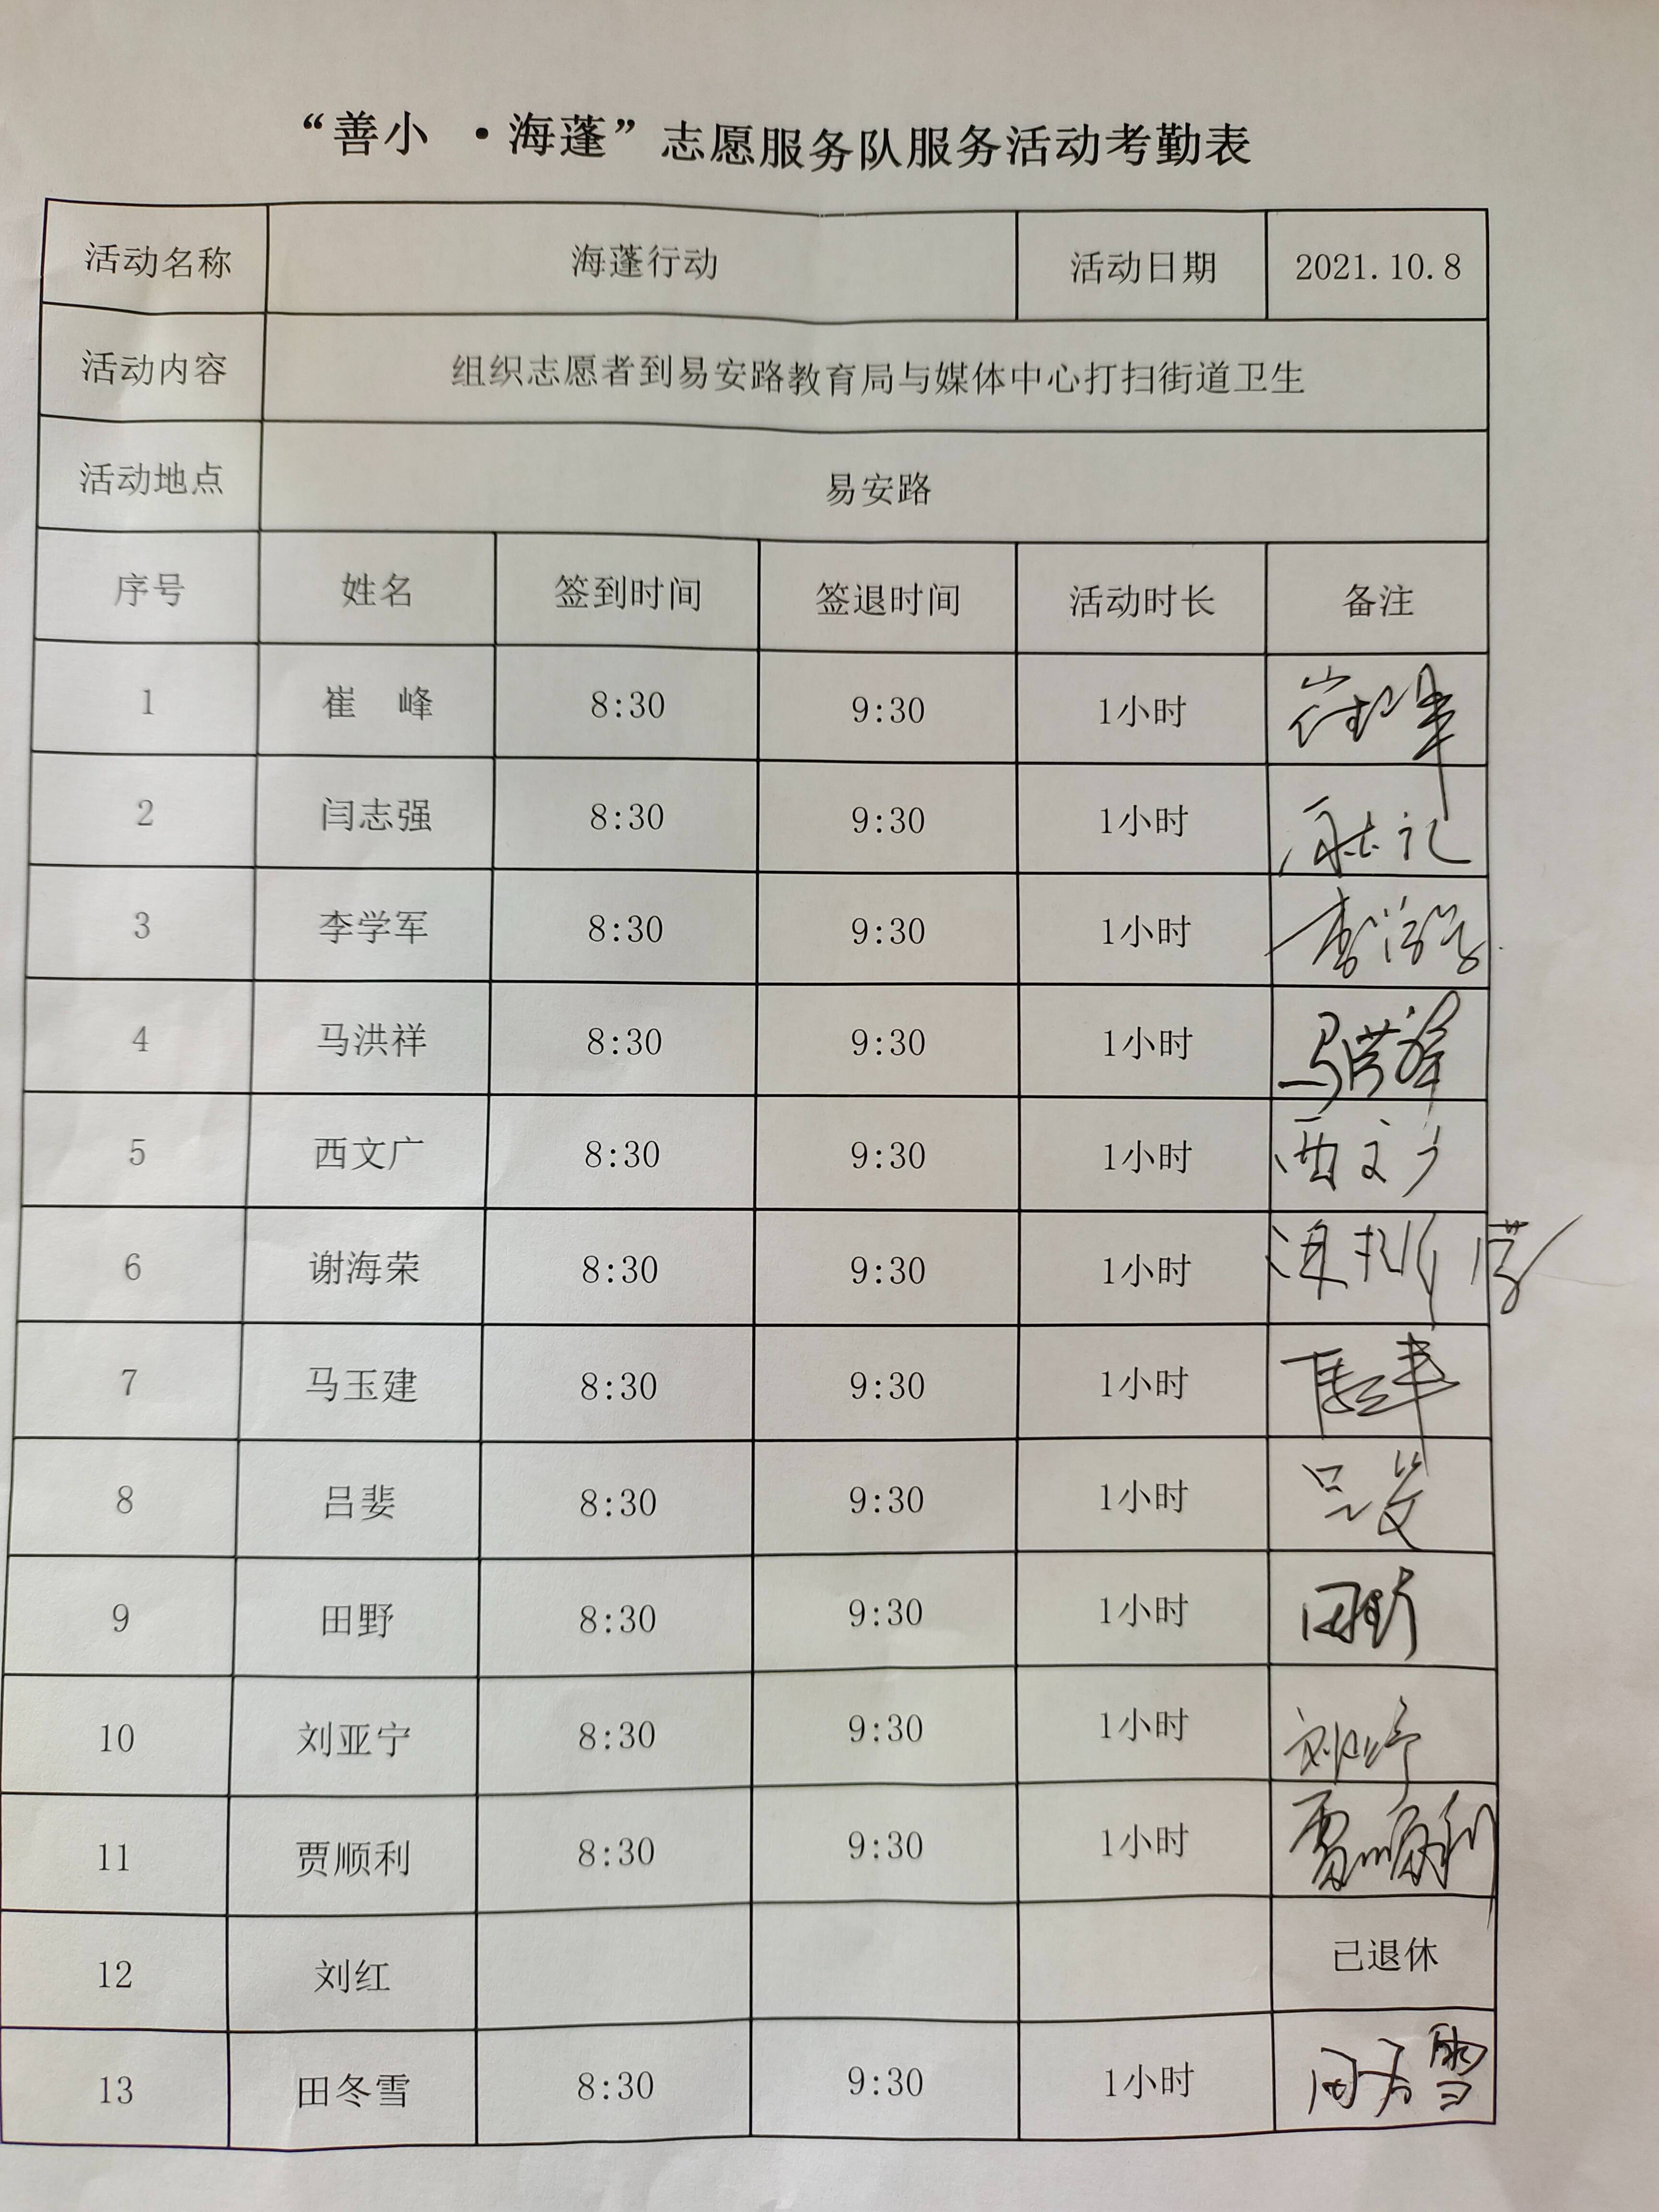 “善小 ·海蓬”志愿服务队服务活动考勤表
活动名称 海蓬行动 活动日期 2021.10.8
活动内容 组织志愿者到易安路教育局与媒体中心打扫街道卫生
活动地点 易安路
序号 姓名 签到时间 签退时间 活动时长 备注
1 崔 峰 8:30 9:30 1小时 崔峰
2 闫志强 8:30 9:30 1小时
3 李学军 8:30 9:30 1小时
4 马洪祥 8:30 9:30 1小时 马洪祥
5 西文广 8:30 9:30 1小时 西文广
6 谢海荣 8:30 9:30 1小时
7 马玉建 8:30 9:30 1小时
8 吕婓 8:30 9:30 1小时
9 田野 8:30 9:30 1小时 田野
10 刘亚宁 8:30 9:30 1小时 刘亚宁
11 贾顺利 8:30 9:30 1小时 贾顺利
12 刘红 已退休
13 田冬雪 8:30 9:30 1小时 田冬雪